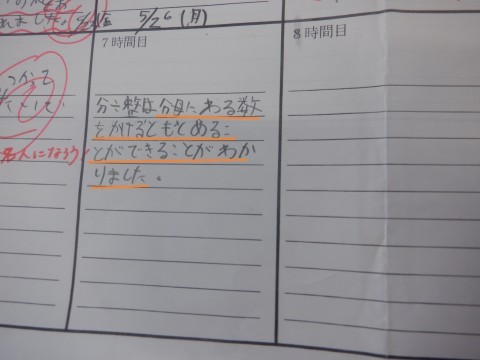 れました。
5/26(月)
7時間目
8時間目
分数は分母にわる数
をかけるともとめるこ
とができることがわか
りました。
つかって
名人になろう!